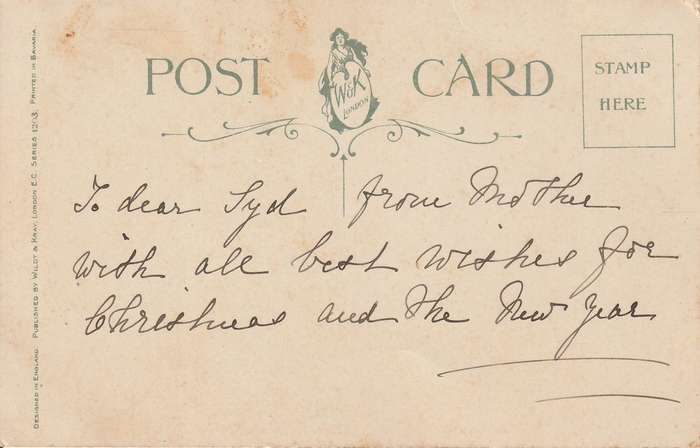 POST CARD
W&K
LONDON
STAMP
HERE
To dear Syd from Mother
with all best wishes for
Christmas and the New Year
DESIGNED IN ENGLAND. PUBLISHED BY WILDT & KRAY, LONDON E.C. SERIES PRINTED IN BAVARIA